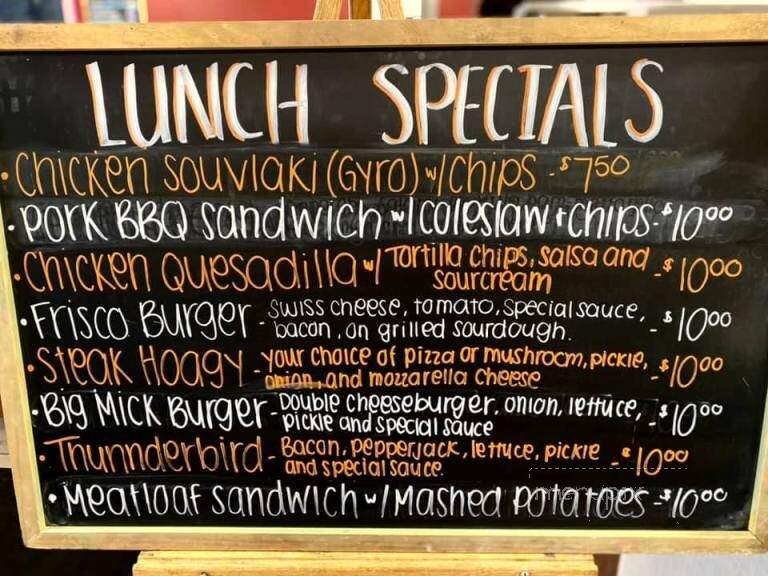 LUNCH SPECIALS
• Chicken Souvlaki (Gyro) w/Chips - $7⁵⁰
• Pork BBQ Sandwich w/coleslaw + chips - $10⁰⁰
• Chicken Quesadilla w/ Tortilla chips, salsa and
sourcream - $10⁰⁰
• Frisco Burger - Swiss cheese, tomato, special sauce,
bacon, on grilled sourdough. - $10⁰⁰
• Steak Hoagy - your choice of pizza or mushroom, pickle,
onion, and mozzarella cheese - $10⁰⁰
• Big Mick Burger - Double cheeseburger, onion, lettuce,
pickle and speciall sauce - $10⁰⁰
• Thunnderbird - Bacon, pepperjack, lettuce, pickle
and special sauce. - $10⁰⁰
• Meatloaf Sandwich w/Mashed Potatoes - $10⁰⁰